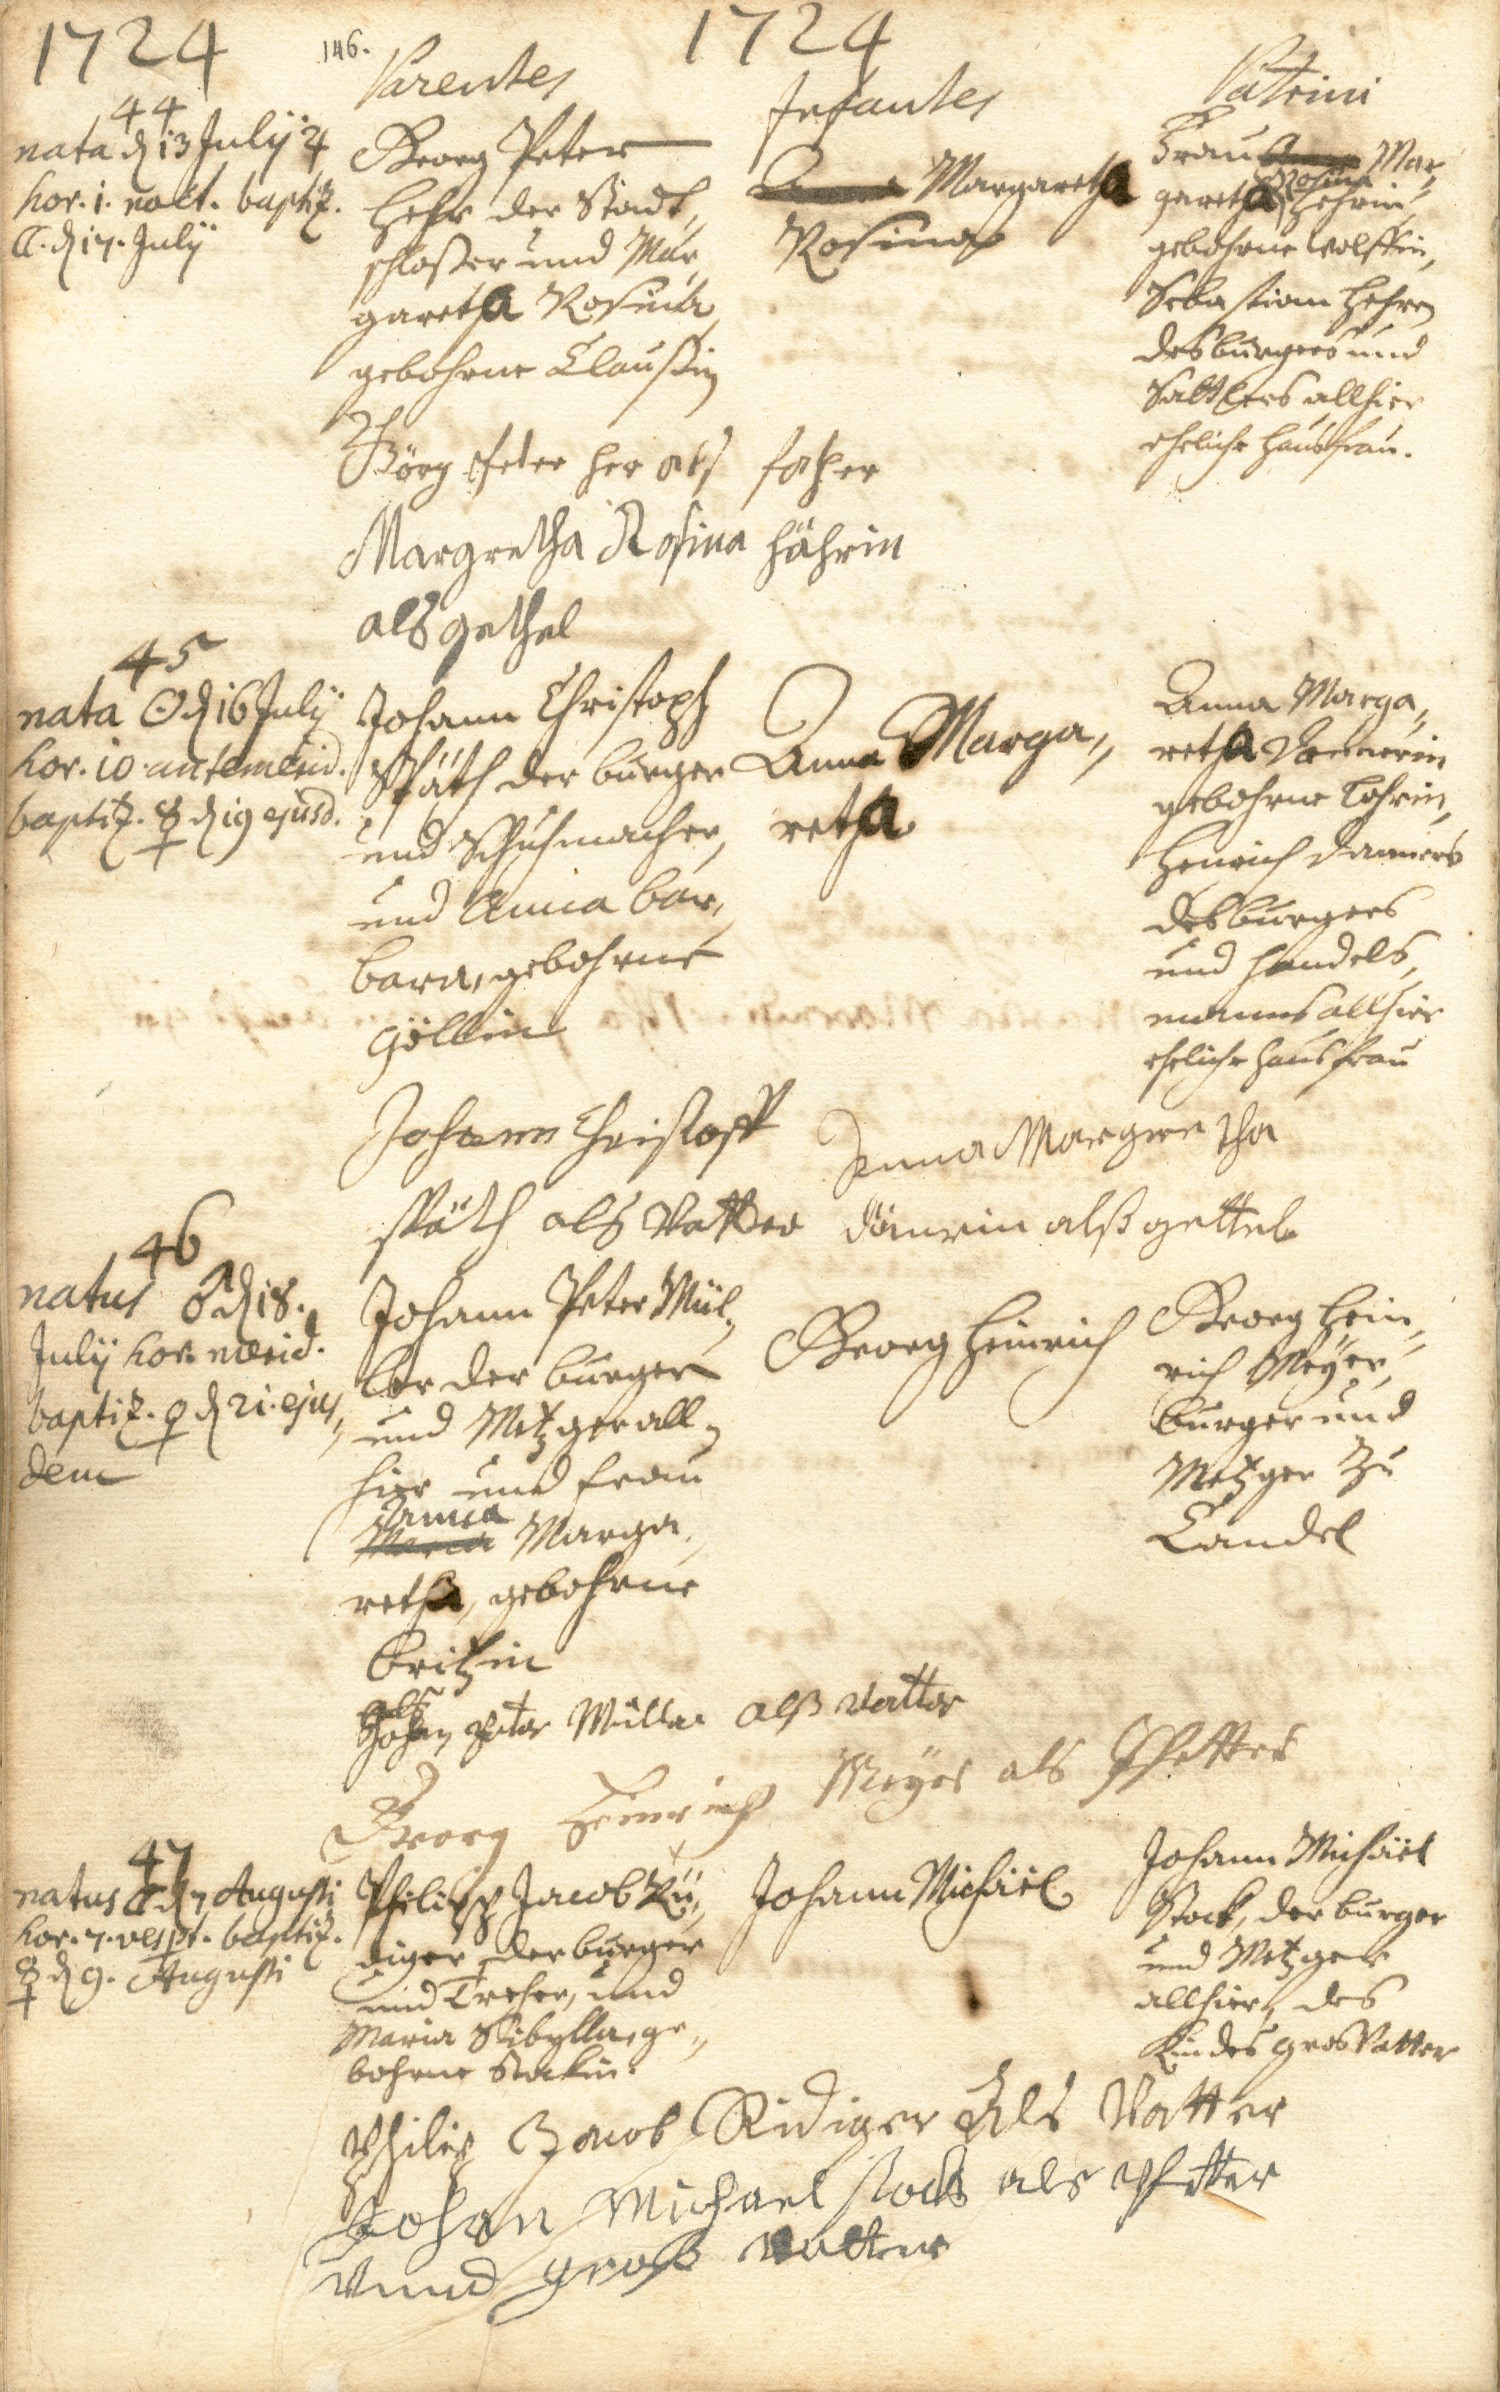 1724
146.
1724
Parentes
Infantes
Patrini
44
nata d 13 Julij ♃
hor. 1. noct. baptiz.
☾. d 17. Julij
Georg Peter
Hehr der Stadt,
schloßer und Mar,
garetha Rosina,
gebohrne Claußin
Margaretha
Rosina
Frau Mar,
garetha Rosina Hehrin,
gebohrne Wolffin,
Sebastian Hehren
des burgers und
Sattlers allhier
eheliche Haußfrau.
Jörg Peter Her als father
Margretha Rosina Hährin
als gethel
45
nata ☉ d 16 Julij
hor. 10 antemerid.
baptiz. ☿ d 19 ejusd.
Johann Christoph
Späth der burger
und Schuhmacher,
und Anna Bar,
bara, gebohrne
Göllin
Anna Marga,,
retha
Anna Marga,,
retha Dannerin
gebohrne Lohrin,
Henrich Danners
des burgers
und handels,
manns allhier
eheliche Hausfrau
Johann Christoff
späth als Vatter
Anna Margretha
dänrin alß gettel
46
natus ♂ d 18.
Julij hor. merid.
baptiz. ♀ d 21. ejus,,
dem
Johann Peter Mül,
ler der burger
und Metzger all,
hier und Frau
Anna
Maria Marga,
retha, gebohrne
Britzin
Georg Heinrich
Georg Hein,,
rich Meÿer,
burger und
Metzger zu
Candel
als
Johan Peter Müller alß vatter
Georg Heinrich Meÿer als Pfetter
47
natus ☾ d 7 Augusti
hor. 7. vespt. baptiz.
☿ d 9. Augusti
Philipp Jacob Rü,,
diger der burger
und Dreher, und
Maria Sibylla, ge,,
bohrne Stockin.
Johann Michäel
Johann Michäel
Stock, der burger
und Metzger
allhier, des
Kindes grosVatter
Philip Jacob Ridiger Als Vatter
Johan Michael stock als Pfetter
Vnnd groß Vatter